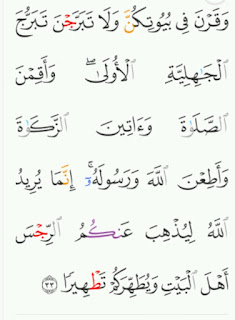 وَقَرْنَ فِى بُيُوتِكُنَّ وَلَا تَبَرَّجْنَ تَبَرُّجَ
ٱلْجَـٰهِلِيَّةِ ٱلْأُولَىٰ ۖ وَأَقِمْنَ
ٱلصَّلَوٰةَ وَءَاتِينَ ٱلزَّكَوٰةَ
وَأَطِعْنَ ٱللَّهَ وَرَسُولَهُۥٓ ۚ إِنَّمَا يُرِيدُ
ٱللَّهُ لِيُذْهِبَ عَنكُمُ ٱلرِّجْسَ
أَهْلَ ٱلْبَيْتِ وَيُطَهِّرَكُمْ تَطْهِيرًا ٣٣